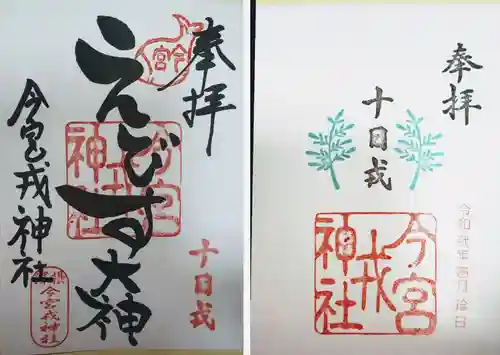 奉拝
今宮
ゑびす大神
今宮戎神社
十日戎
今宮戎神社
今宮戎神社
奉拝
十日戎
今宮戎神社
令和弐年壱月拾日